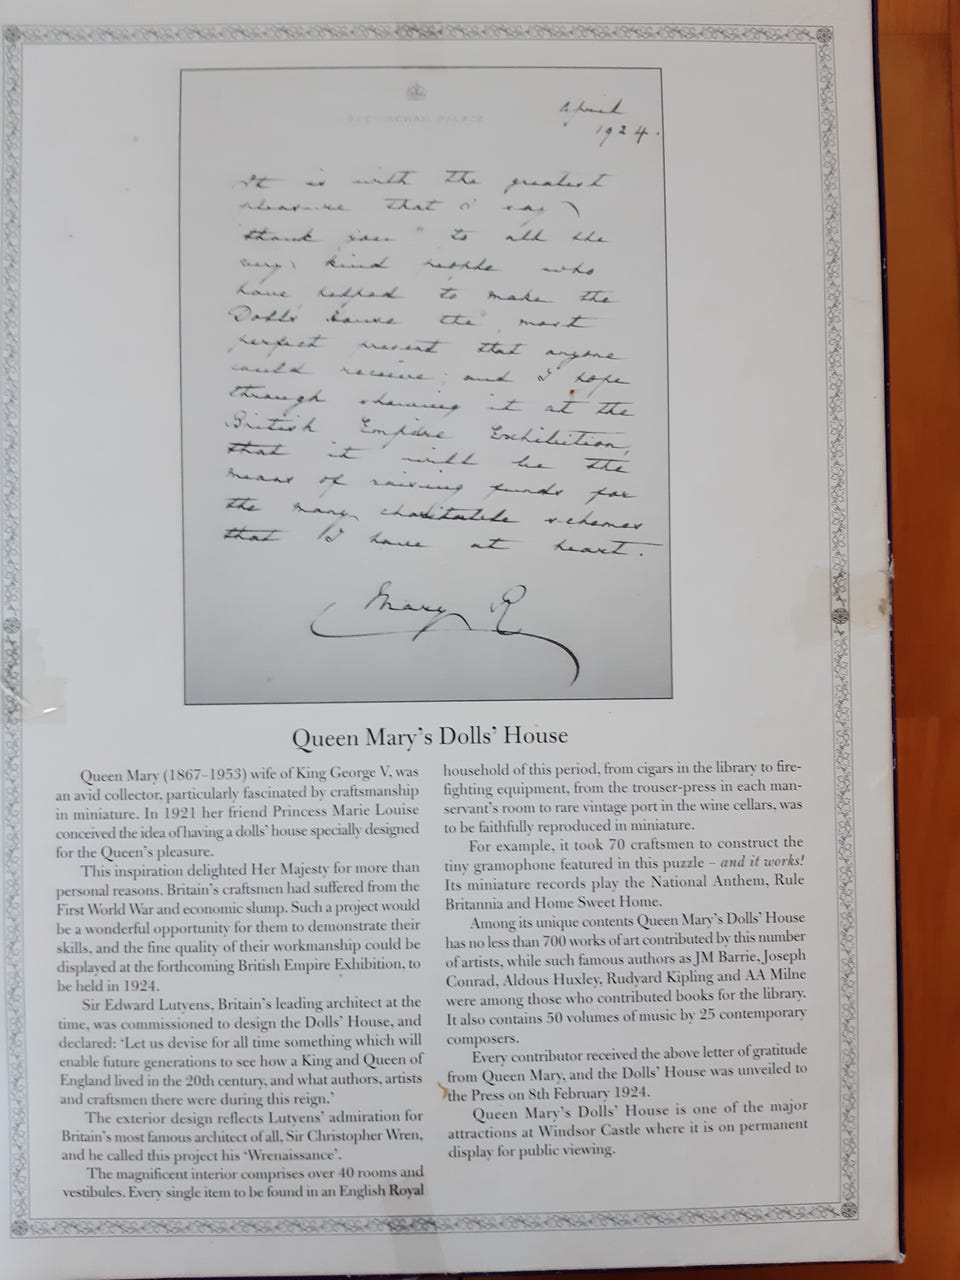 BUCKINGHAM PALACE
April
1924.
It is with the greatest
pleasure that I say
"thank you" to all the
very kind people who
have helped to make the
Dolls' house the most
perfect present that anyone
could receive; and I hope
through showing it at the
British Empire Exhibition,
that it will be the
means of raising funds for
the many charitable schemes
that I have at heart.
Mary R
Queen Mary's Dolls' House
Queen Mary (1867–1953) wife of King George V, was
an avid collector, particularly fascinated by craftsmanship
in miniature. In 1921 her friend Princess Marie Louise
conceived the idea of having a dolls' house specially designed
for the Queen's pleasure.
This inspiration delighted Her Majesty for more than
personal reasons. Britain's craftsmen had suffered from the
First World War and economic slump. Such a project would
be a wonderful opportunity for them to demonstrate their
skills, and the fine quality of their workmanship could be
displayed at the forthcoming British Empire Exhibition, to
be held in 1924.
Sir Edward Lutyens, Britain's leading architect at the
time, was commissioned to design the Dolls' House, and
declared: 'Let us devise for all time something which will
enable future generations to see how a King and Queen of
England lived in the 20th century, and what authors, artists
and craftsmen there were during this reign.'
The exterior design reflects Lutyens' admiration for
Britain's most famous architect of all, Sir Christopher Wren,
and he called this project his 'Wrenaissance'.
The magnificent interior comprises over 40 rooms and
vestibules. Every single item to be found in an English Royal
household of this period, from cigars in the library to fire-
fighting equipment, from the trouser-press in each man-
servant's room to rare vintage port in the wine cellars, was
to be faithfully reproduced in miniature.
For example, it took 70 craftsmen to construct the
tiny gramophone featured in this puzzle – and it works!
Its miniature records play the National Anthem, Rule
Britannia and Home Sweet Home.
Among its unique contents Queen Mary's Dolls' House
has no less than 700 works of art contributed by this number
of artists, while such famous authors as JM Barrie, Joseph
Conrad, Aldous Huxley, Rudyard Kipling and AA Milne
were among those who contributed books for the library.
It also contains 50 volumes of music by 25 contemporary
composers.
Every contributor received the above letter of gratitude
from Queen Mary, and the Dolls' House was unveiled to
the Press on 8th February 1924.
Queen Mary's Dolls' House is one of the major
attractions at Windsor Castle where it is on permanent
display for public viewing.